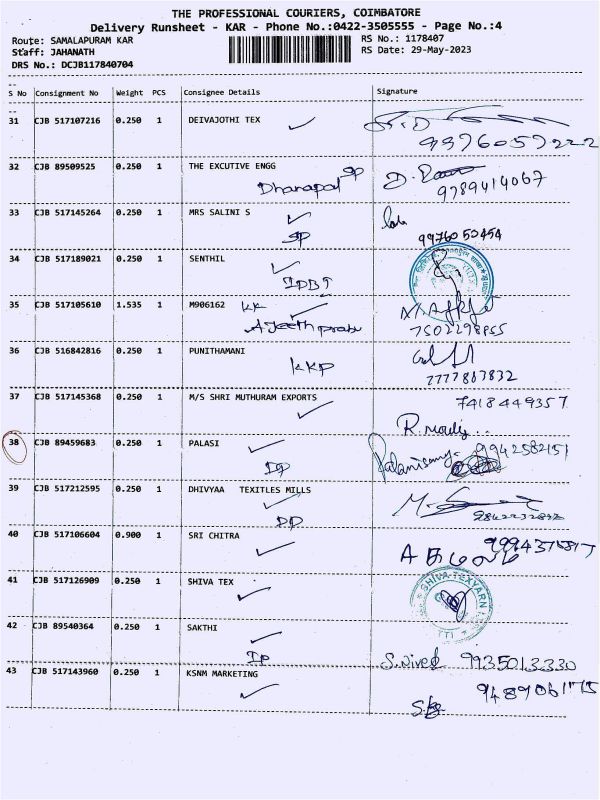 THE PROFESSIONAL COURIERS, COIMBATORE
Delivery Runsheet - KAR - Phone No.:0422-3505555 - Page No.:4
Route: SAMALAPURAM KAR RS No.: 1178407
Staff: JAHANATH RS Date: 29-May-2023
DRS No.: DCJB117840704
S No Consignment No Weight PCS Consignee Details Signature
31 CJB 517107216 0.250 1 DEIVAJOTHI TEX
9976057222
32 CJB 89509525 0.250 1 THE EXCUTIVE ENGG
Dhanapal
9789414067
33 CJB 517145264 0.250 1 MRS SALINI S
9976050454
34 CJB 517189021 0.250 1 SENTHIL
IDBI
35 CJB 517105610 1.535 1 M906162 KK
7502298955
36 CJB 516842816 0.250 1 PUNITHAMANI
KKP
7777867832
37 CJB 517145368 0.250 1 M/S SHRI MUTHURAM EXPORTS 7418449357
38 CJB 89459683 0.250 1 PALASI 9942582151
Palanisamy
39 CJB 517212595 0.250 1 DHIVYAA TEXITLES MILLS
40 CJB 517106604 0.900 1 SRI CHITRA
41 CJB 517126909 0.250 1 SHIVA TEX
SHIVA TEXYARN
42 CJB 89540364 0.250 1 SAKTHI
9935013330
43 CJB 517143960 0.250 1 KSNM MARKETING
9489061775